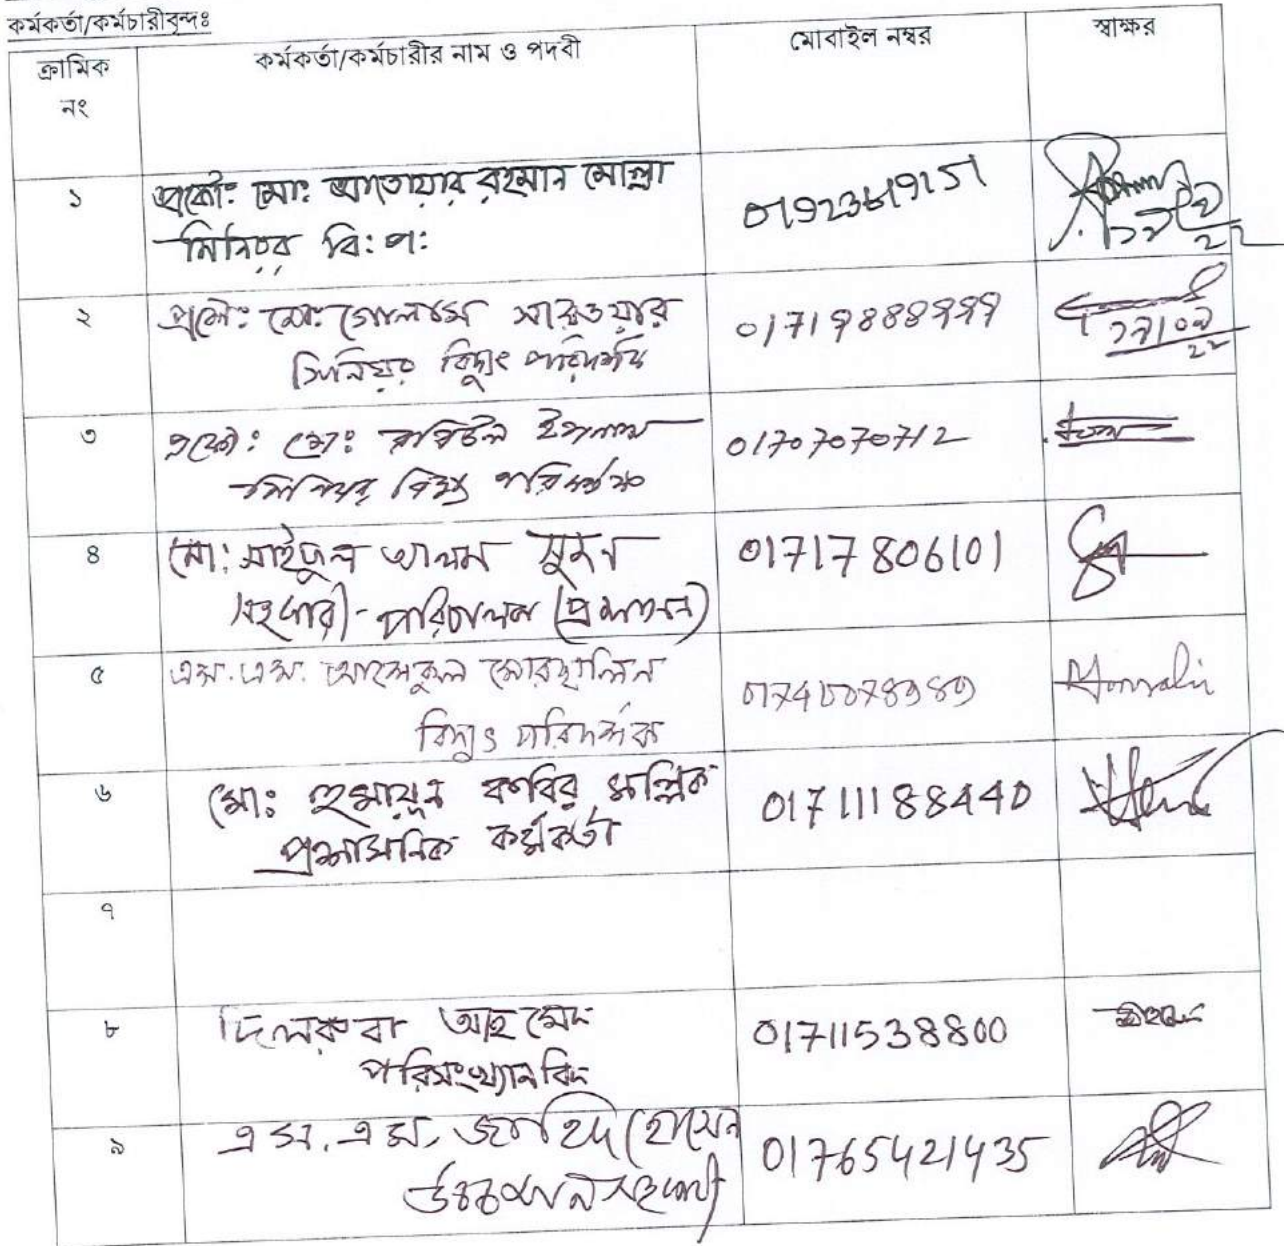 কর্মকর্তা/কর্মচারীবৃন্দঃ
ক্রামিক নং
কর্মকর্তা/কর্মচারীর নাম ও পদবী
মোবাইল নম্বর
স্বাক্ষর
১
প্রকৌ: মো: আতোয়ার রহমান মোল্লা
সিনিয়র বি: প:
01923619151
২
প্রকৌ: মো: গোলাম সারওয়ার
সিনিয়র বিদ্যুৎ পরিদর্শক
০১৭১৭৪৪৪৭৭৭
৩
প্রকৌ: মো: ইসলাম
সিনিয়র বিদ্যুৎ পরিদর্শক
01707070712
৪
মো: সাইদুল আলম সুমন
সহকারী-পরিচালক (প্রশাসন)
01717806101
৫
এস.এম. মোরছালিন
বিদ্যুৎ পরিদর্শক
৬
মো: হুমায়ুন কবির মল্লিক
প্রশাসনিক কর্মকর্তা
01711188440
৭
৮
দিলরুবা আহমেদ
পরিসংখ্যানবিদ
01711538800
৯
এস. এম. জাহিদ হোসেন
উচ্চমান সহকারী
01765421435